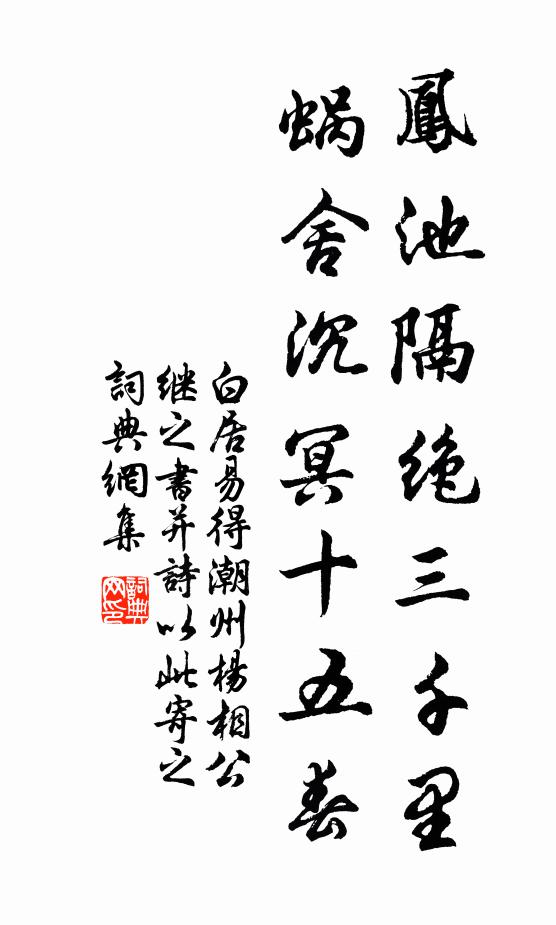 鳳池隔绝三千里
蜗舍沉冥十五春
白居易得潮州楊相公
继之書并詩以此寄之
詞典網集
詞典
网印